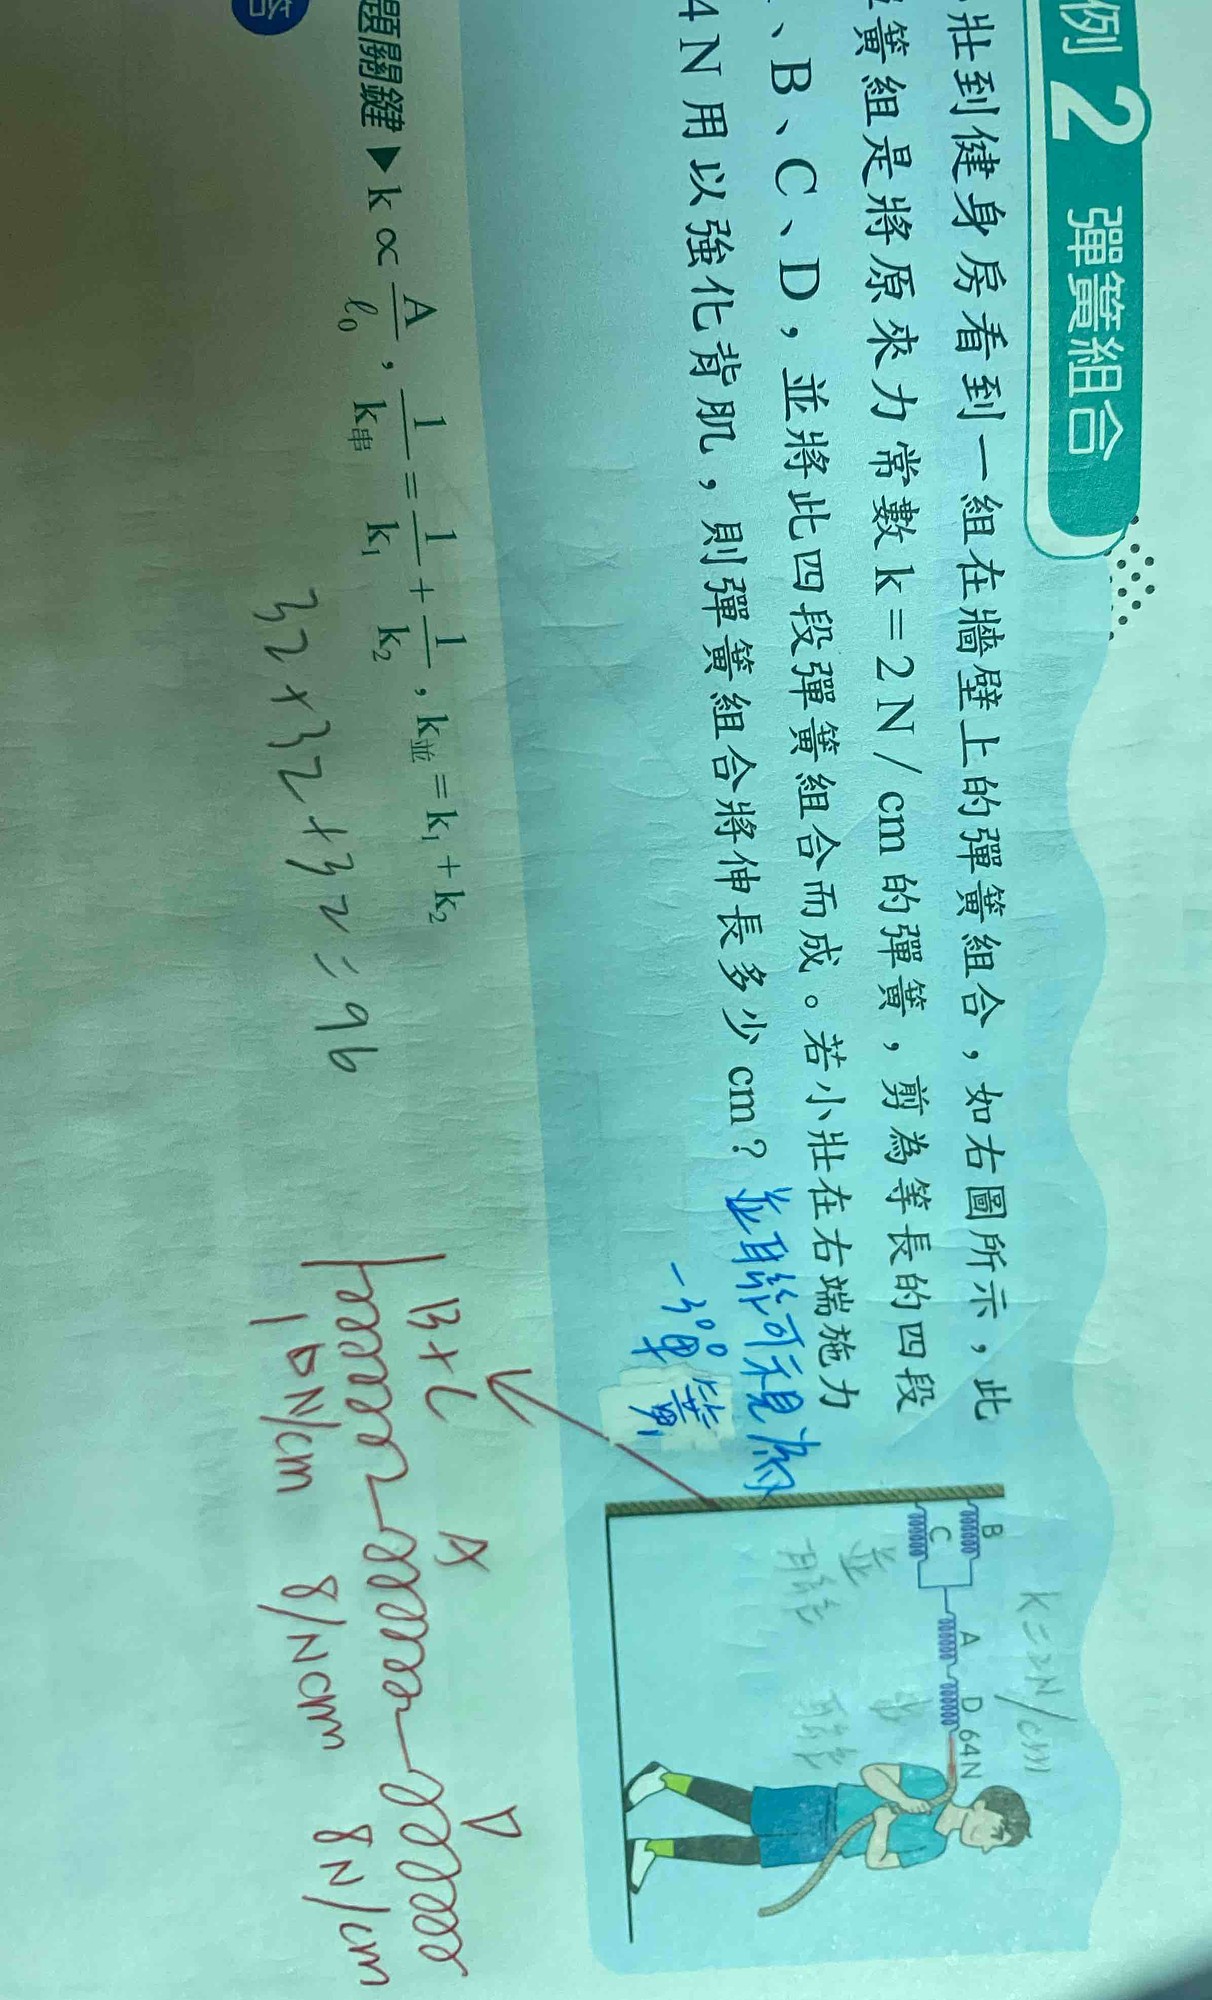 例 2 彈簧組合
壯到健身房看到一組在牆壁上的彈簧組合，如右圖所示，此
簧組是將原來力常數 k＝2 N/cm 的彈簧，剪為等長的四段
、B、C、D，並將此四段彈簧組合而成。若小壯在右端施力
4 N 用以強化背肌，則彈簧組合將伸長多少 cm？
並聯可視為
一彈簧
k=2N/cm
B
C
A
D
64N
並聯
串聯
題關鍵▶k ∝ A/ℓ₀，1/k串＝1/k₁＋1/k₂，k並＝k₁＋k₂
答
32+32+32=96
B+C
A
D
16N/cm
8/Ncm
8N/cm